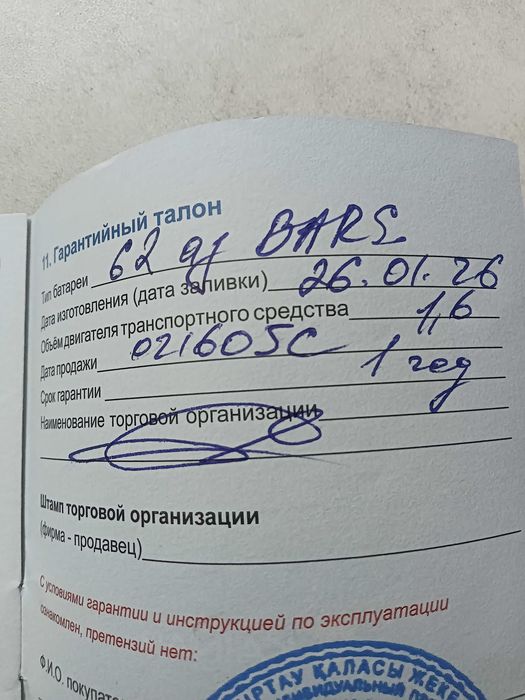 11. Гарантийный талон
Тип батареи 62 BARS
Дата изготовления (дата заливки) 26.01.26
Объём двигателя транспортного средства 1,6
Дата продажи 021605C
Срок гарантии 1 год
Наименование торговой организации
Штамп торговой организации
(фирма - продавец)
С условиями гарантии и инструкцией по эксплуатации
ознакомлен, претензий нет:
Ф.И.О. покупат
ЫРТАУ ҚАЛАСЫ ЖЕК